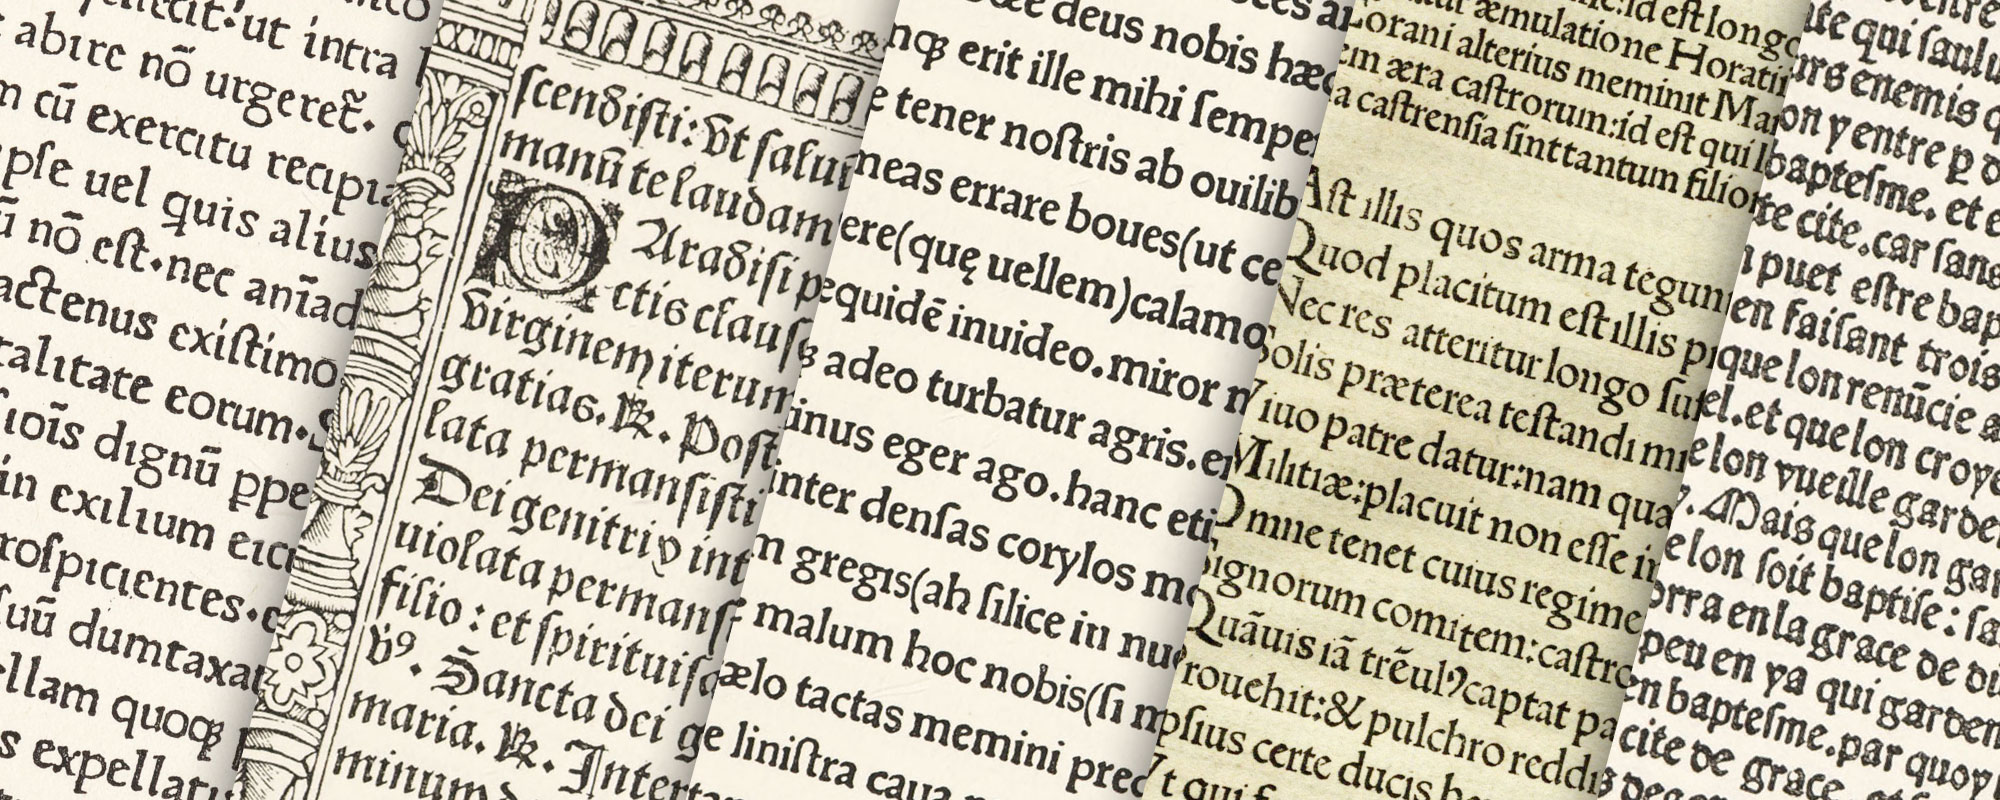 abire nō urgeret̃.
cū exercitu recipi
uel quis alius
ū nō est.nec anīad
actenus existimo
talitate eorum.
dignū ꝓpe
in exilium eici
rospicientes.
dumtaxat
llam quoqꝫ
s expellat
scendisti: vt salui
manū te laudam
Aradisi p
ctis claus
virginem iterum
gratias. ℟. Post
lata permansisti
Dei genitrix int
uiolata permans
filio : et spiritui s
v̄9. Sancta dei ge
maria. ℟. Interr
minum
deus nobis hæc
nqꝫ erit ille mihi sempe
e tener nostris ab ouilib
meas errare boues(ut ce
ere(quę uellem)calamo
equidē inuideo.miror
adeo turbatur agris.
inus eger ago.hanc eti
inter densas corylos mo
m gregis(ah silice in nu
malum hoc nobis(si m
ælo tactas memini pred
linistra caua
:id est longo
æmulatione Horatii
orani alterius meminit Mar
em æra castrorum:id est qui
a castrensia sint tantum filior
Ast illis quos arma tegun
Quod placitum est illis pr
Nec res atteritur longo suf
Solis præterea testandi mi
Viuo patre datur:nam quæ
Militiæ:placuit non esse in
Omne tenet cuius regime
Signorum comitem:castro
Quāuis iā trēulꝰ captat pa
rouehit:& pulchro reddi
psius certe ducis
Vt qui f
te qui saulu
urs enemis
on y entre ꝑ
baptesme. et
te cite.car sans
puet estre bap
en faisant trois
que lon renūcie a
el.et que lon croye
e lon vueille garder
Mais que lon gar
e lon soit baptise: sa
orra en la grace de di
peu en ya qui garden
en baptesme.par quoy
cite de grace